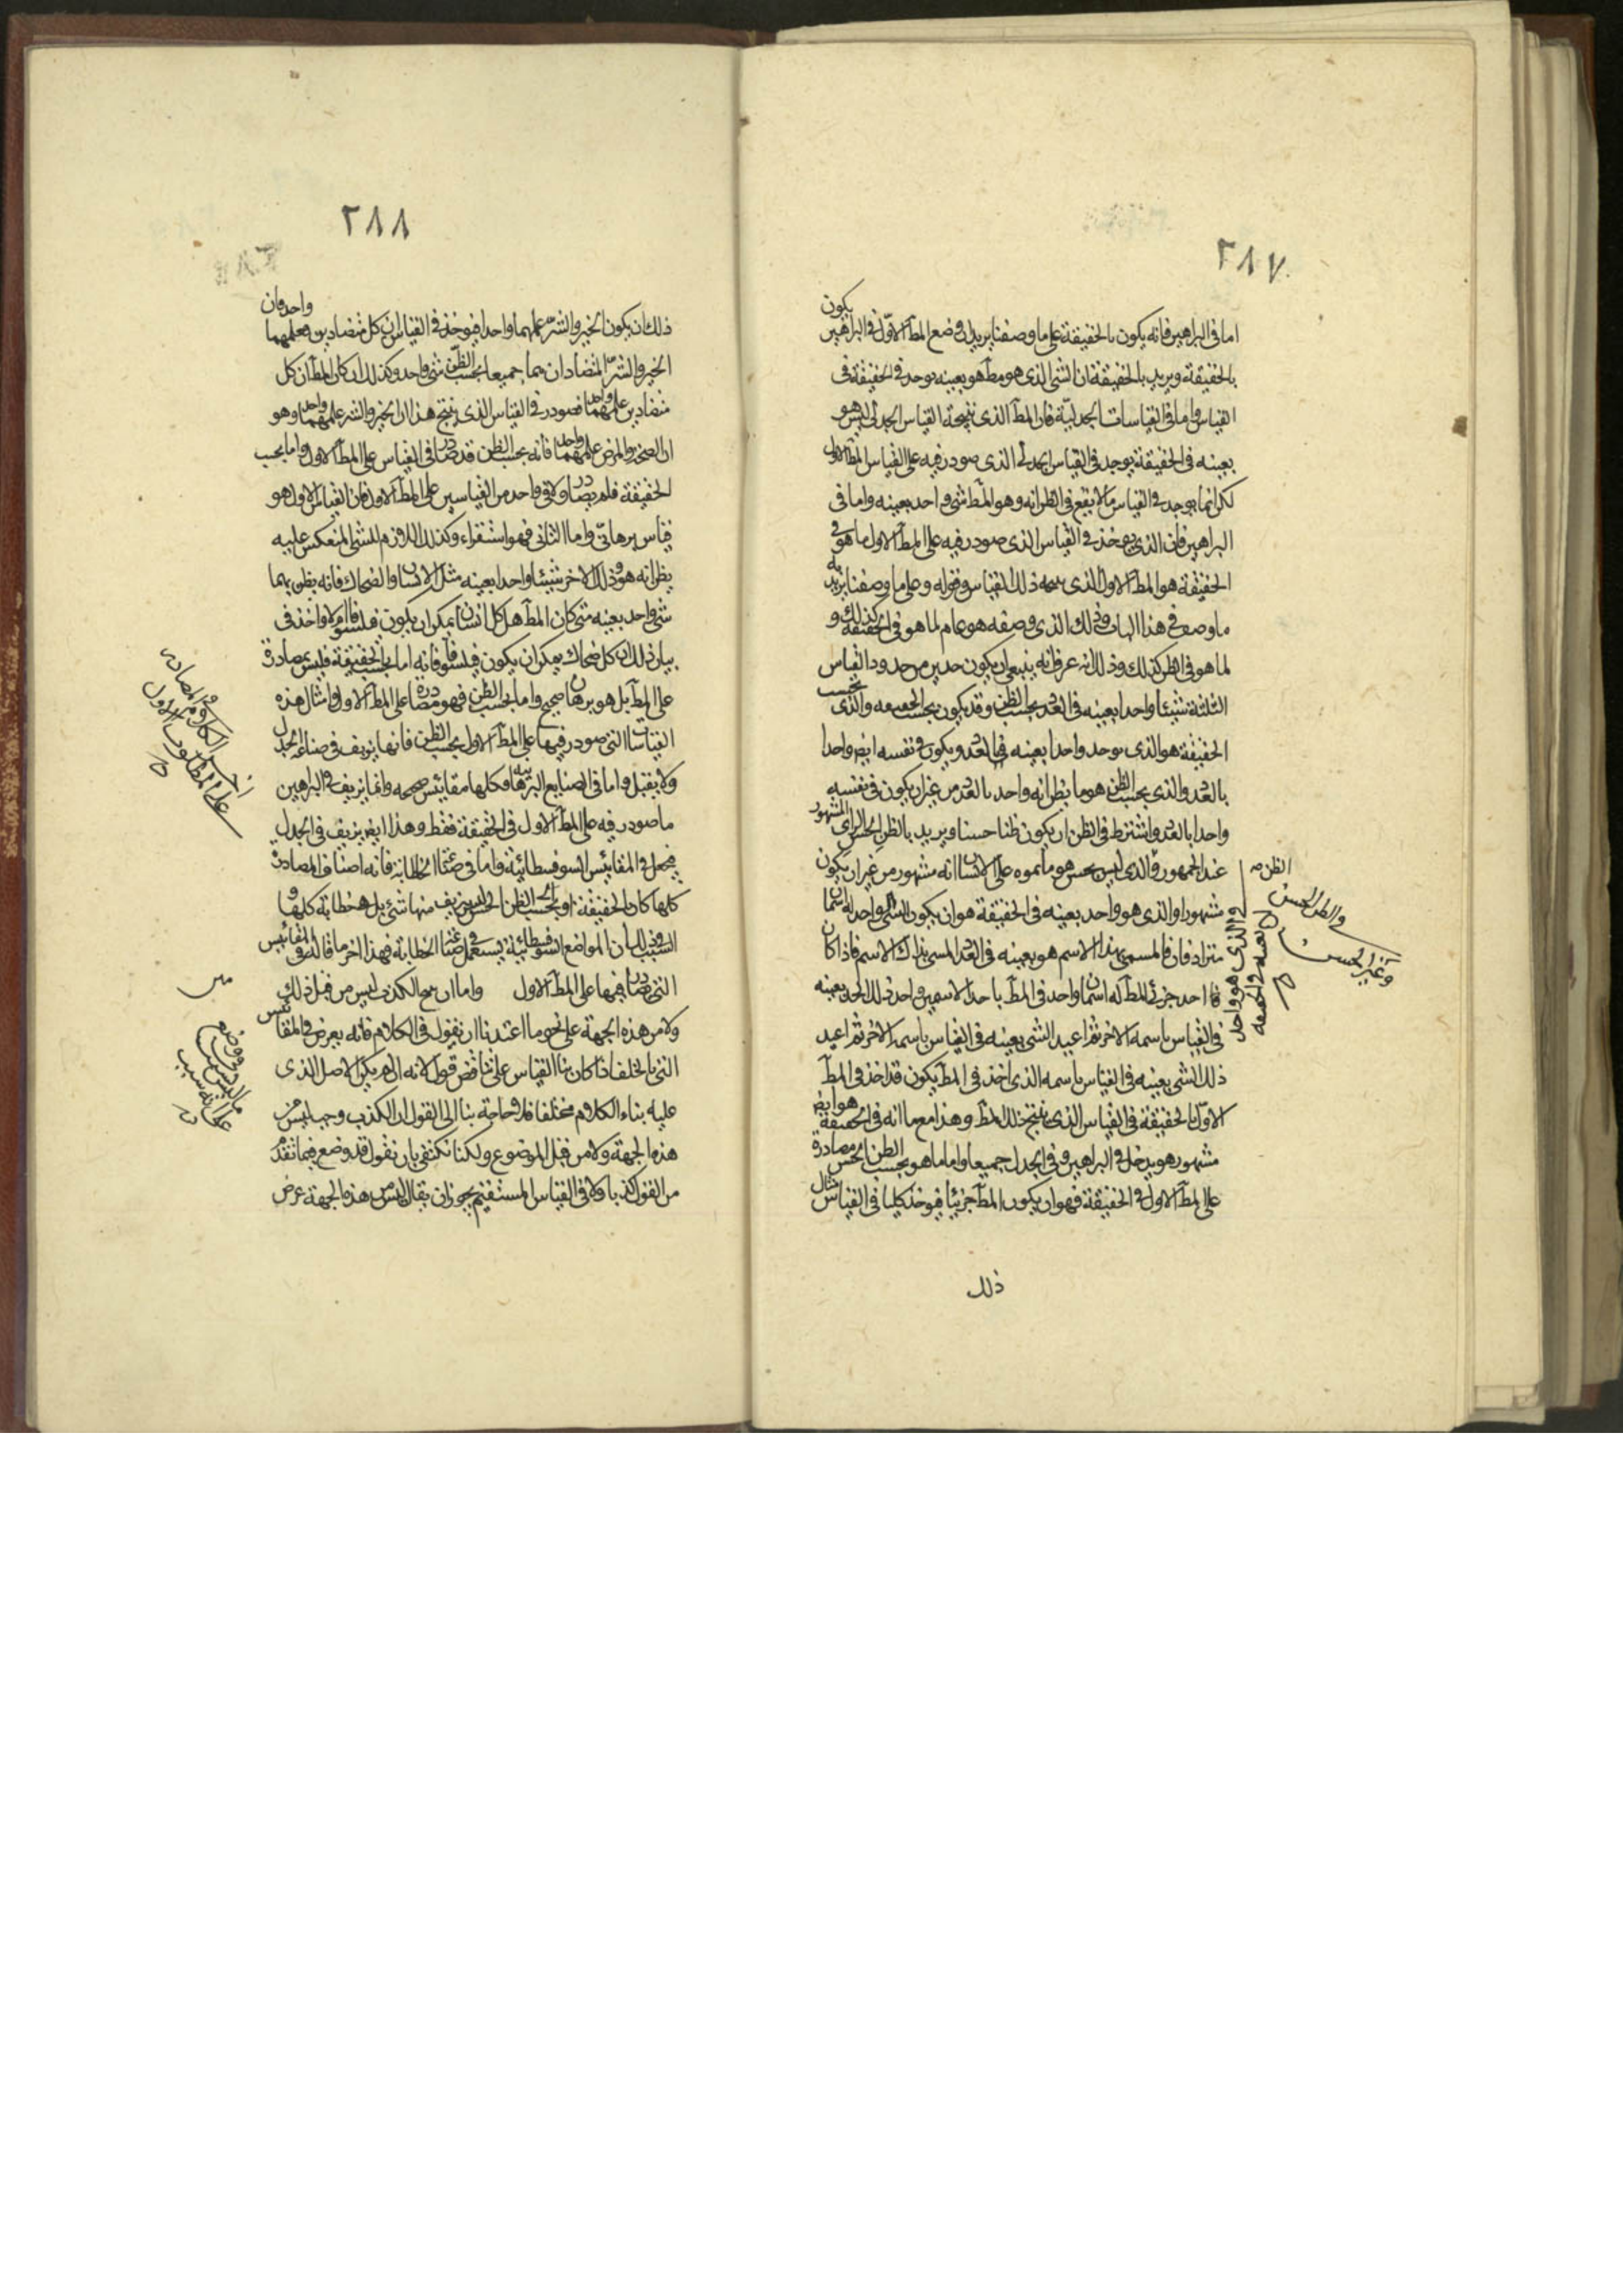 ٢٨٧
اما فى البراهين فانه يكون بالحقيقة على ما وصفنا يريد ان وضع المط الاول فى البراهين يكون
بالحقيقة ويريد بالحقيقة ان الشى الذى هو مط هو بعينه يوجد فى الحقيقة فى
القياس واما فى القياسات الجدلية فان المط الذى نتيجة القياس الجدلى ليس هو
بعينه فى الحقيقة يوجد فى القياس الجدلى الذى صودر فيه على القياس المط الاول
لكن انما يوجد فى القياس ما لا يقع فى الظن انه وهو المط شى واحد بعينه واما فى
البراهين فان الذى يوخذ فى القياس الذى صودر فيه على المط الاول ما هو فى
الحقيقة هو المط الاول الذى ذلك القياس وقوله وعلى ما وصفنا يريد به
ما وصف فى هذا الباب وفى ذلك الذى وصفه هو عام لما هو فى الحقيقة كذلك و
لما هو فى الظن كذلك وذلك انه عرف انه ينبغى ان يكون حدين من حدود القياس
الثلثة شيئا واحدا بعينه فى العدد بحسب الظن وقد يكون بحسب الحقيقة والذى بحسب
الحقيقة هو الذى يوجد واحدا بعينه فى العدد ويكون فى نفسه ايضا واحدا
بالعدد والذى بحسب الظن هو ما يظن انه واحد بالعدد من غير ان يكون فى نفسه
واحدا بالعدد واشترط فى الظن ان يكون ظنا حسنا ويريد بالظن الحسن الراى المشهور
عند الجمهور والذى ليس بحسن هو ما يموه على الانسان انه مشهور من غير ان يكون
مشهورا والذى هو واحد بعينه فى الحقيقة هو ان يكون الشى واحد له اسمان
مترادفان فالمسمى بهذا الاسم هو بعينه فى العدد المسمى بذلك الاسم فاذا كان
احد جزئى المط له اسمان واخذ فى المط باحد الاسمين واخذ ذلك الحد بعينه
فى القياس باسمه الاخر ثم اعيد الشى بعينه فى القياس باسمه الاخر ثم اعيد
ذلك الشى بعينه فى القياس باسمه الذى اخذ فى المط يكون قد اخذ فى المط
الاول بالحقيقة فى القياس الذى ينتج ذلك المط وهذا مع ما انه فى الحقيقة هو ايضا
مشهور هو يدخل فى البراهين وفى الجدل جميعا واما ما هو بحسب الظن الحسن مصادرة
على المط الاول فى الحقيقة فهو ان يكون المط جزئيا فيوخذ كليا فى القياس مثال
ذلك
الظن
والظن الحسن
وغير الحسن
والذى هو واحد
بعينه والحقيقة
٢٨٨
ذلك ان يكون الخير والشر علمهما واحدا فيوخذ فى القياس ان كل متضادين فعلمهما واحد وان
الخير والشر المتضادان هما جميعا بحسب الظن شى واحد وكذلك ان كان المط ان كل
متضادين علمهما واحدا فصودر فى القياس الذى ينتج هذا ان الخير والشر علمهما واحد وهو
ان الصحة والمرض علمهما واحد فانه بحسب الظن قد صادر فى القياس على المط الاول واما بحسب
الحقيقة فلم يصادر ولا فى واحد من القياسين على المط الاول فان القياس الاول هو
قياس برهانى واما الثانى فهو استقراء وكذلك اللازم للشى المنعكس عليه
يظن انه هو وذلك الاخر شيئا واحدا بعينه مثل الانسان والضحاك فانه يظن بهما
شى واحد بعينه متى كان المط هل كل انسان يمكن ان يكون فيلسوفا ام لا واخذ فى
بيان ذلك ان كل ضحاك يمكن ان يكون فيلسوفا فانه اما بحسب الحقيقة فليس بمصادرة
على المط بل هو برهان صحيح واما بحسب الظن فهو مصادرة على المط الاول وامثال هذه
القياسات التى صودر فيها على المط الاول بحسب الظن فانها يزيف فى صناعة الجدل
ولا يقبل واما فى الصنايع البرهانية فكلها مقائيس صحيحة وانما يزيف فى البراهين
ما صودر فيه على المط الاول فى الحقيقة فقط وهذا ايضا يزيف فى الجدل
فيجعل فى المقائيس السوفسطائية واما فى صناعة الخطابة فانه اصناف المصادرة
كلها كان الحقيقة او بحسب الظن الحسن ليس يزيف منها شى بل هى خطابة كلها و
السبب فى ذلك ان المواضع السوفسطائية يستعمل فى صناعة الخطابة فهذا اخر ما قاله فى المقائيس
التى يصادر فيها على المط الاول واما ان الكذب ليس من قبل ذلك
ولا من هذه الجهة على نحو ما اعتدنا ان نقول فى الكلام فانه يعرض فى المقائيس
التى بالخلف اذا كان بنا القياس على تناقض قول لانه ان لم يكن الاصل الذى
عليه بناء الكلام مختلفا فلا حاجة بنا الى القول ان الكذب وجب ليس من
هذه الجهة ولا من قبل الموضوع ولكنا نكتفى بان نقول قد وضع فيما تقدم
من القول كذبا ولا فى القياس المستقيم يجوز ان يقال ليس من هذه الجهة عرض
اخر الكلام فى المصادرة
على المطلوب الاول